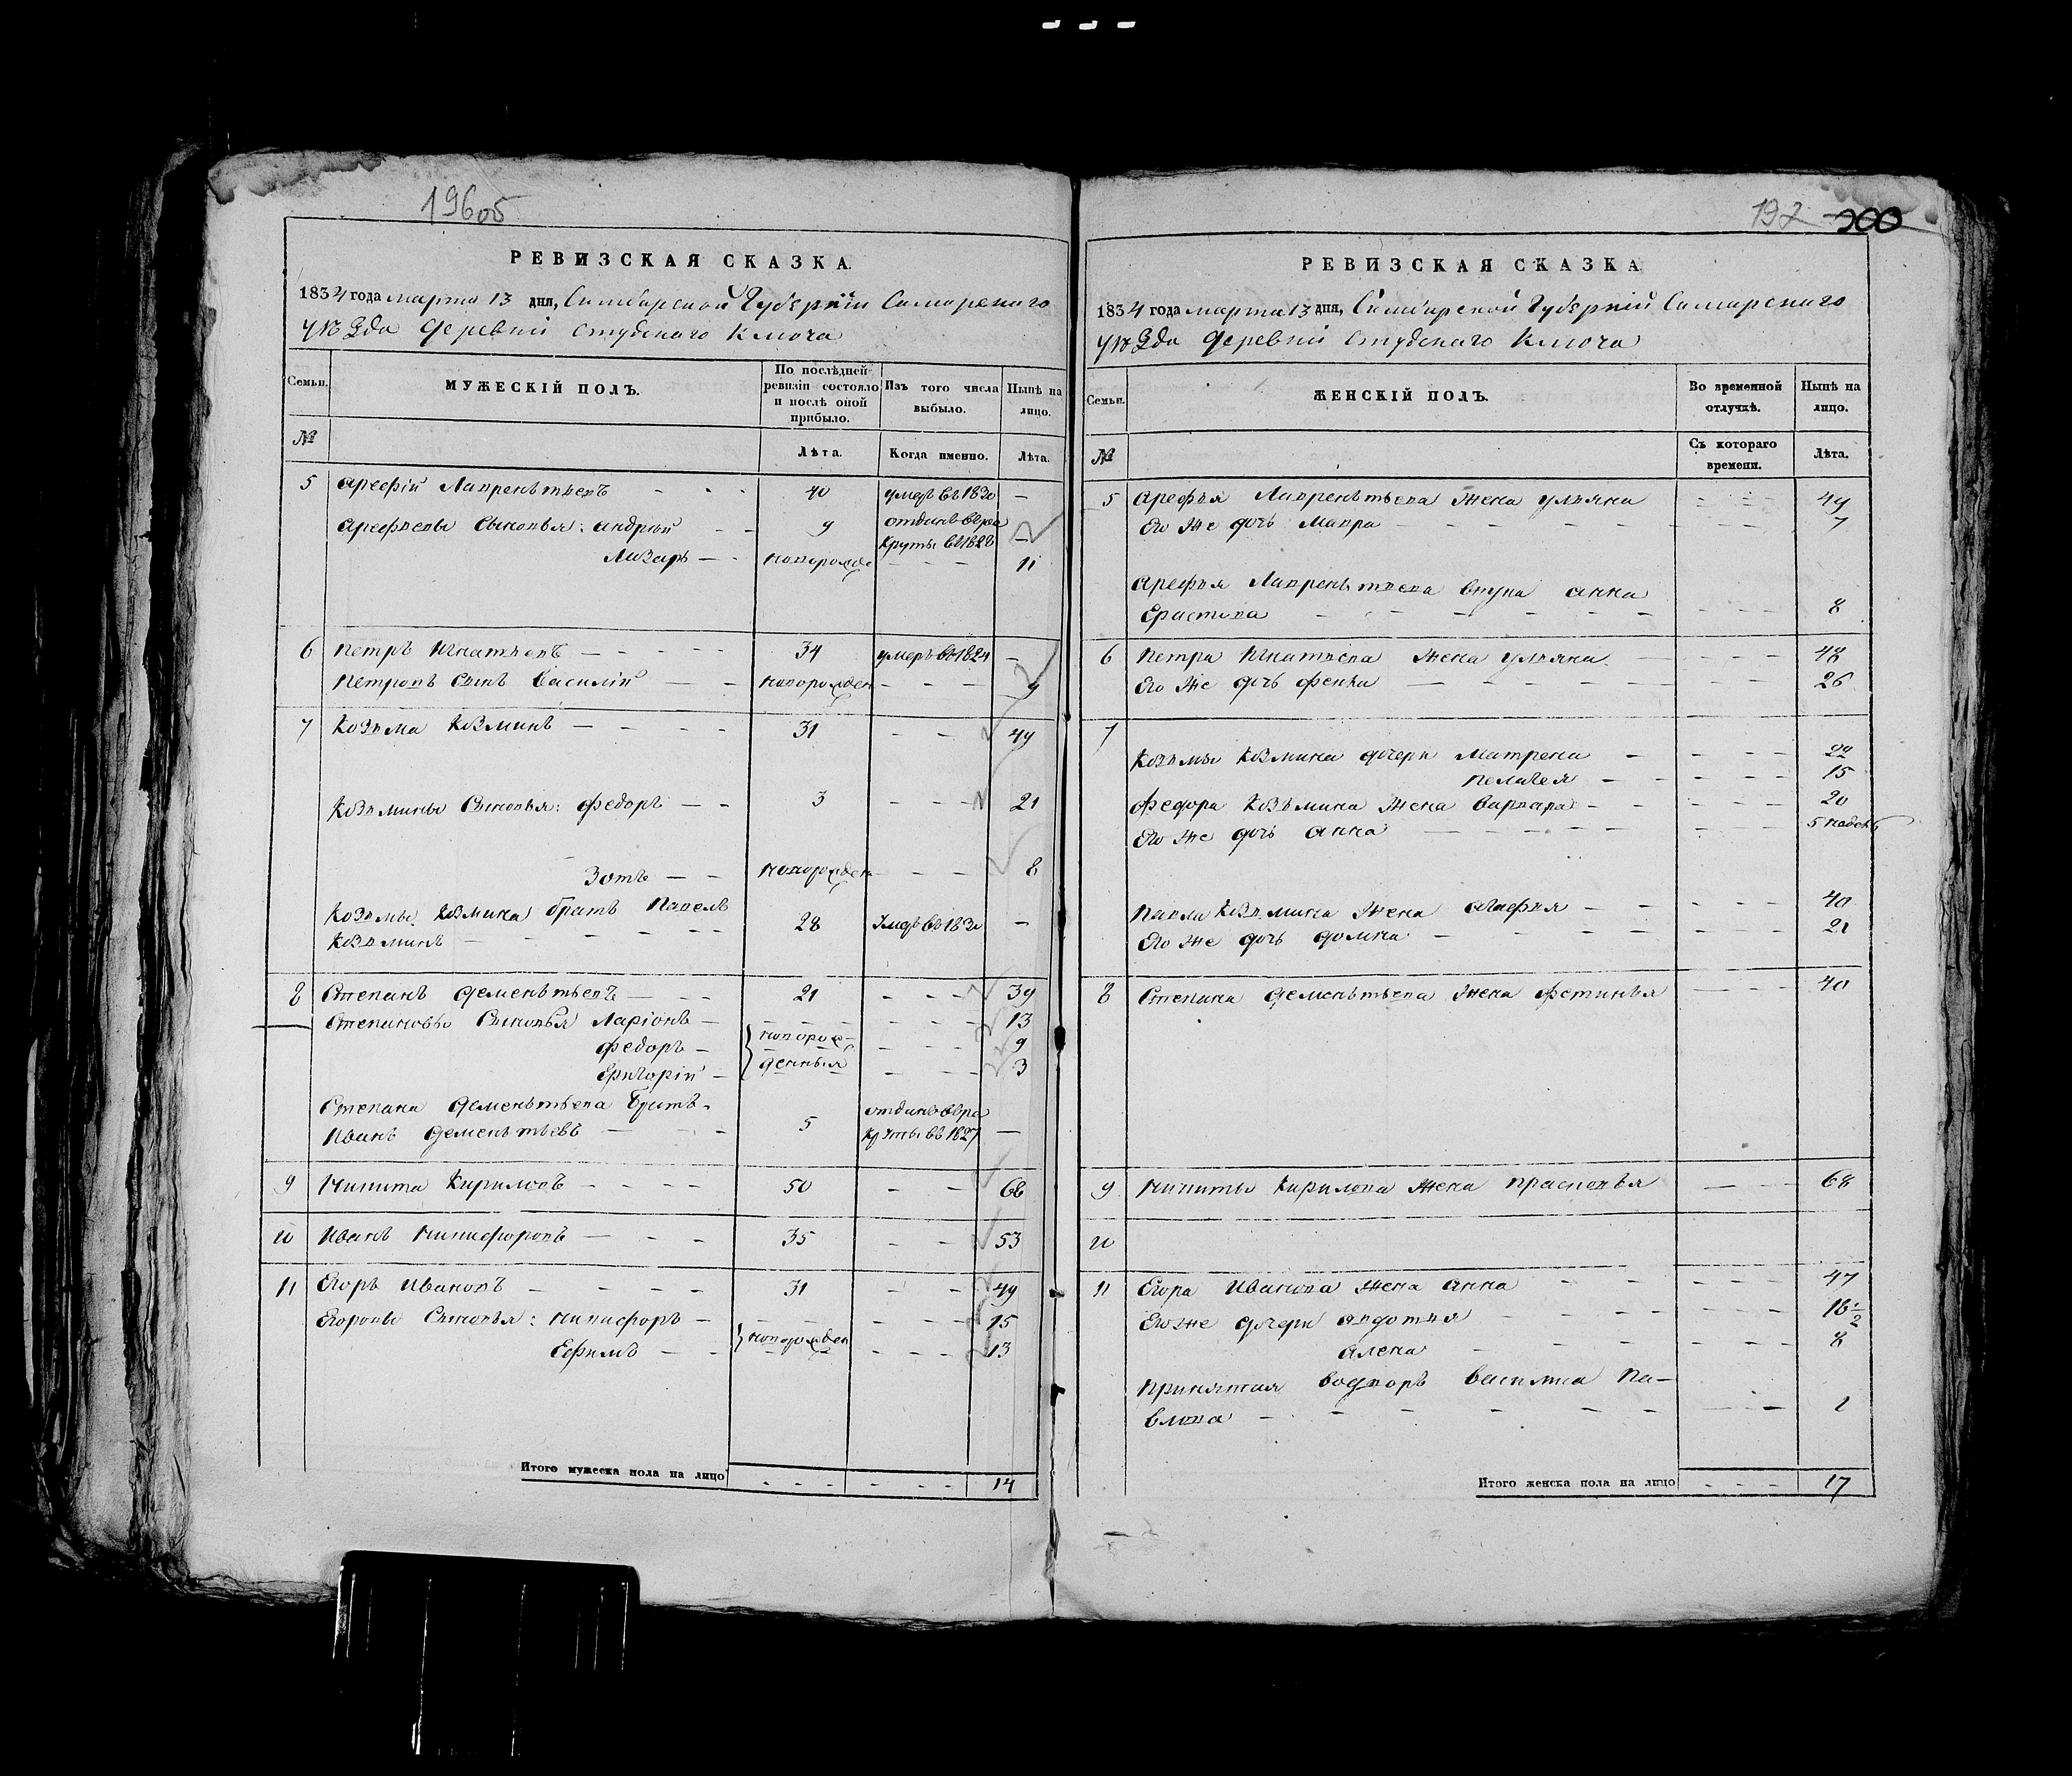 196об
РЕВИЗСКАЯ СКАЗКА.
1834 года марта 13 дня, Симбирской Губерніи Самарскаго
уѣзда деревни Студенаго Ключа
Семьи.
МУЖЕСКІЙ ПОЛЪ.
По послѣдней ревизіи состояло и послѣ оной прибыло.
Изъ того числа выбыло.
Нынѣ на лицо.
№
Лѣта.
Когда именно.
Лѣта.
5 Арефій Лаврентьевъ - - - 40 умеръ въ 183 —
Арефьевы Сыновья: Андрей - - 9 отданъ въ ре
круты въ 1828 —
Лазарь — - новорожде - - - 11
6 Петръ Игнатьевъ — - - - - 34 умеръ въ 1824 —
Петровъ Сынъ Василій — - - новорожден - - - 9
7 Козьма Козминъ — - - - - 31 - - - 49
Козьмины Сыновья: Федоръ — - 3 - - - 21
Зотъ — - новорожден - - - 8
Козьмы Козмина братъ Павелъ
Козьминъ — - - - - - 28 умеръ въ 183 —
8 Степанъ Дементьевъ — - - 21 - - - 39
Степановы Сыновья Ларіонъ — - - - - - - 13
Федоръ — новорож- - - - 9
Григорій — денныя - - - 3
Степана Дементьева братъ
Иванъ Дементьевъ — - - 5 отданъ въ ре
круты въ 1827 —
9 Никита Кириловъ — - - - - 50 - - - 68
10 Иванъ Никифоровъ — - - - 35 - - - 53
11 Егоръ Ивановъ — - - - - 31 - - - 49
Егоровы Сыновья: Никифоръ — - - - - - - 15
Ефимъ — - новорожден - - - 13
Итого мужеска пола на лицо - - - - - - - 14
197 200
РЕВИЗСКАЯ СКАЗКА
1834 года марта 13 дня, Симбирской Губерніи Самарскаго
уѣзда деревни Студенаго Ключа
Семьи.
ЖЕНСКІЙ ПОЛЪ.
Во временной отлучкѣ.
Нынѣ на лицо.
№
Съ котораго времени.
Лѣта.
5 Арефья Лаврентьева жена Ульяна - - - 49
Его же дочь Мавра — - - - - - - - - 7
Арефья Лаврентьева внука Анна
Ерастова - - - - - - - - - 8
6 Петра Игнатьева жена Ульяна - - - - 48
Его же дочь Фекла — - - - - - - - 26
7
Козьмы Козмина дочери Матрена — - - - - 22
Пелагея - - - - - 15
Федора Козьмина жена Варвара - - - - - - 20
Его же дочь Анна — - - - - - - - 5 недель
Павла Козьмина жена Агафья - - - - - - 40
Его же дочь Домна - - - - - - - 21
8 Степана Дементьева жена Фетинья — - - 40
9 Никиты Кирилова жена Прасковья — - - 68
10
11 Егора Иванова жена Анна - - - - - - 47
Его же дочери Авдотья - - - - - - - 16 1/2
Алена - - - - - - 8
Принятая водворъ Василиса Па-
влова — - - - - - - — - 2
Итого женска пола на лицо - - - 17